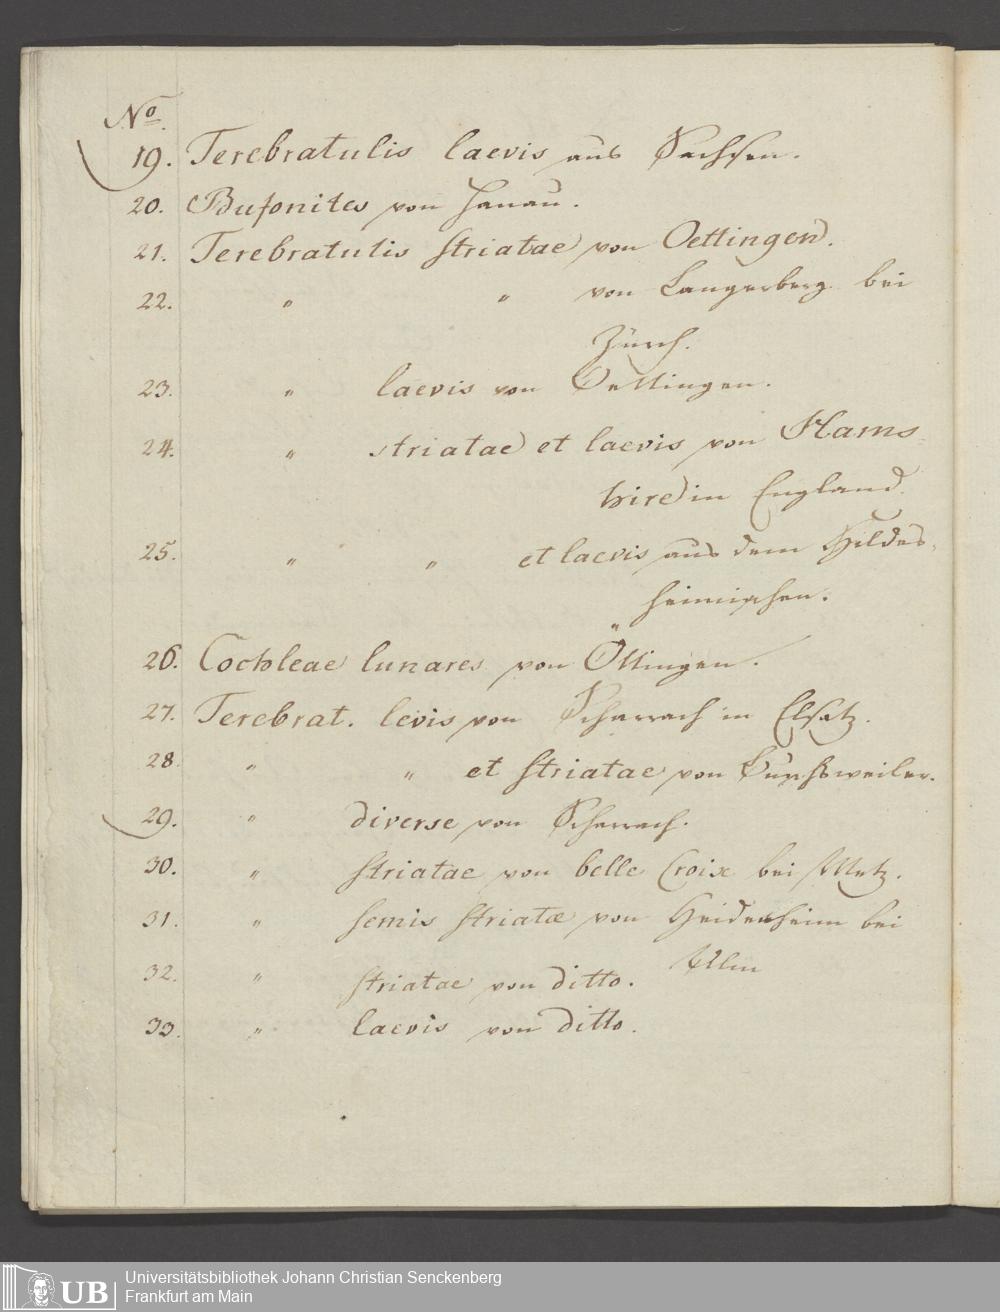 No.
19. Terebratulis laevis aus Sachsen.
20. Bufonites von Hanau.
21. Terebratulis striatae von Oettingen.
22. " " von Langerberg bei
Zürch.
23. " laevis von Oettingen.
24. " striatae et laevis von Hams-
hire in England.
25. " " et laevis aus dem Hildes-
heimischen.
26. Cochleae lunares von Öttingen.
27. Terebrat. levis von Scharrach in Elsatz.
28. " " et striatae von weiler.
29. " diverse von Scharrach.
30. " striatae von belle Croix bei Metz.
31. " semis striatæ von Heidenheim bei
Ulm
32. " striatae von ditto.
33. " laevis von ditto.
UB Universitätsbibliothek Johann Christian Senckenberg
Frankfurt am Main